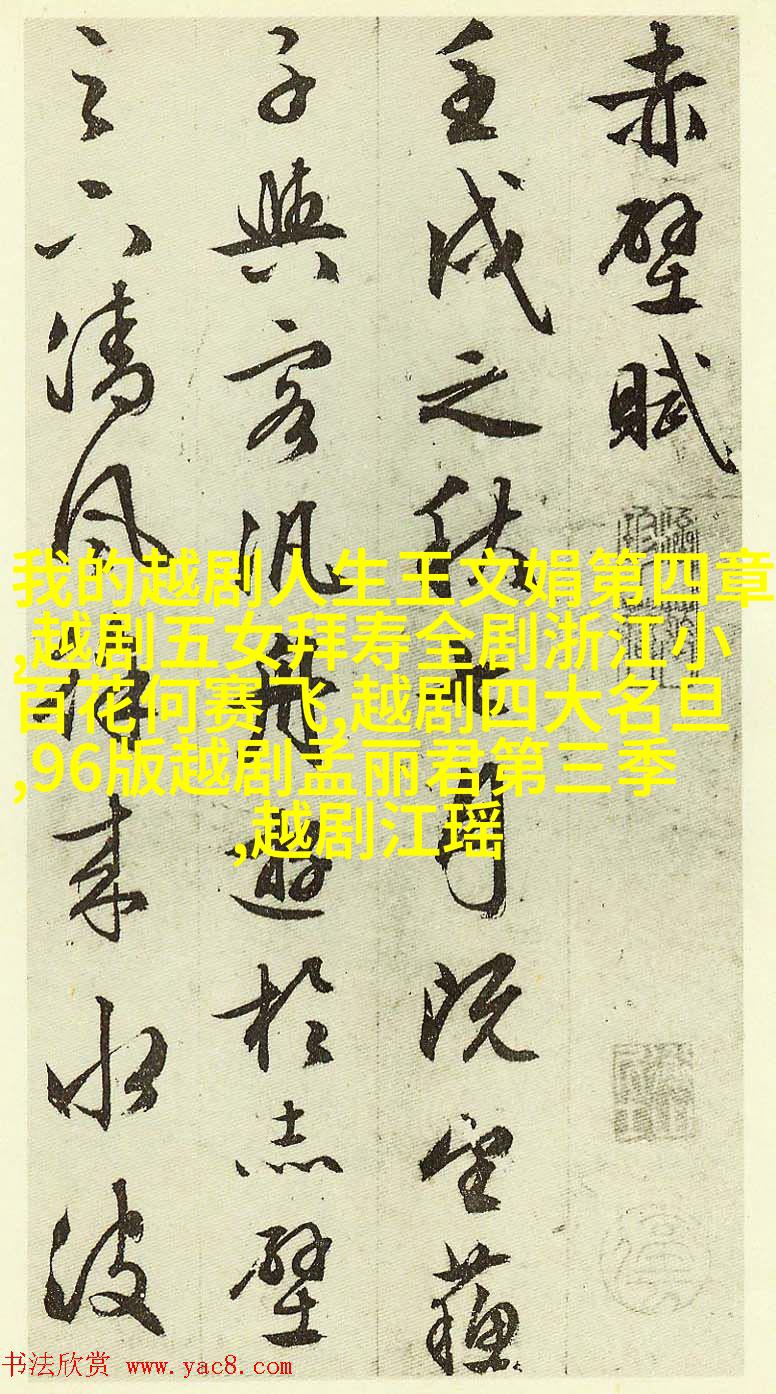 赤壁賦
壬戌之秋七月既望蘓
子與客汎舟遊於赤壁
之下清風徐來水波
我的越剧人生王文娟第四章
,越剧五女拜寿全剧浙江小
百花何赛飞,越剧四大名旦
,96版越剧孟丽君第三季
,越剧江瑶
书法欣赏 www.yac8.com